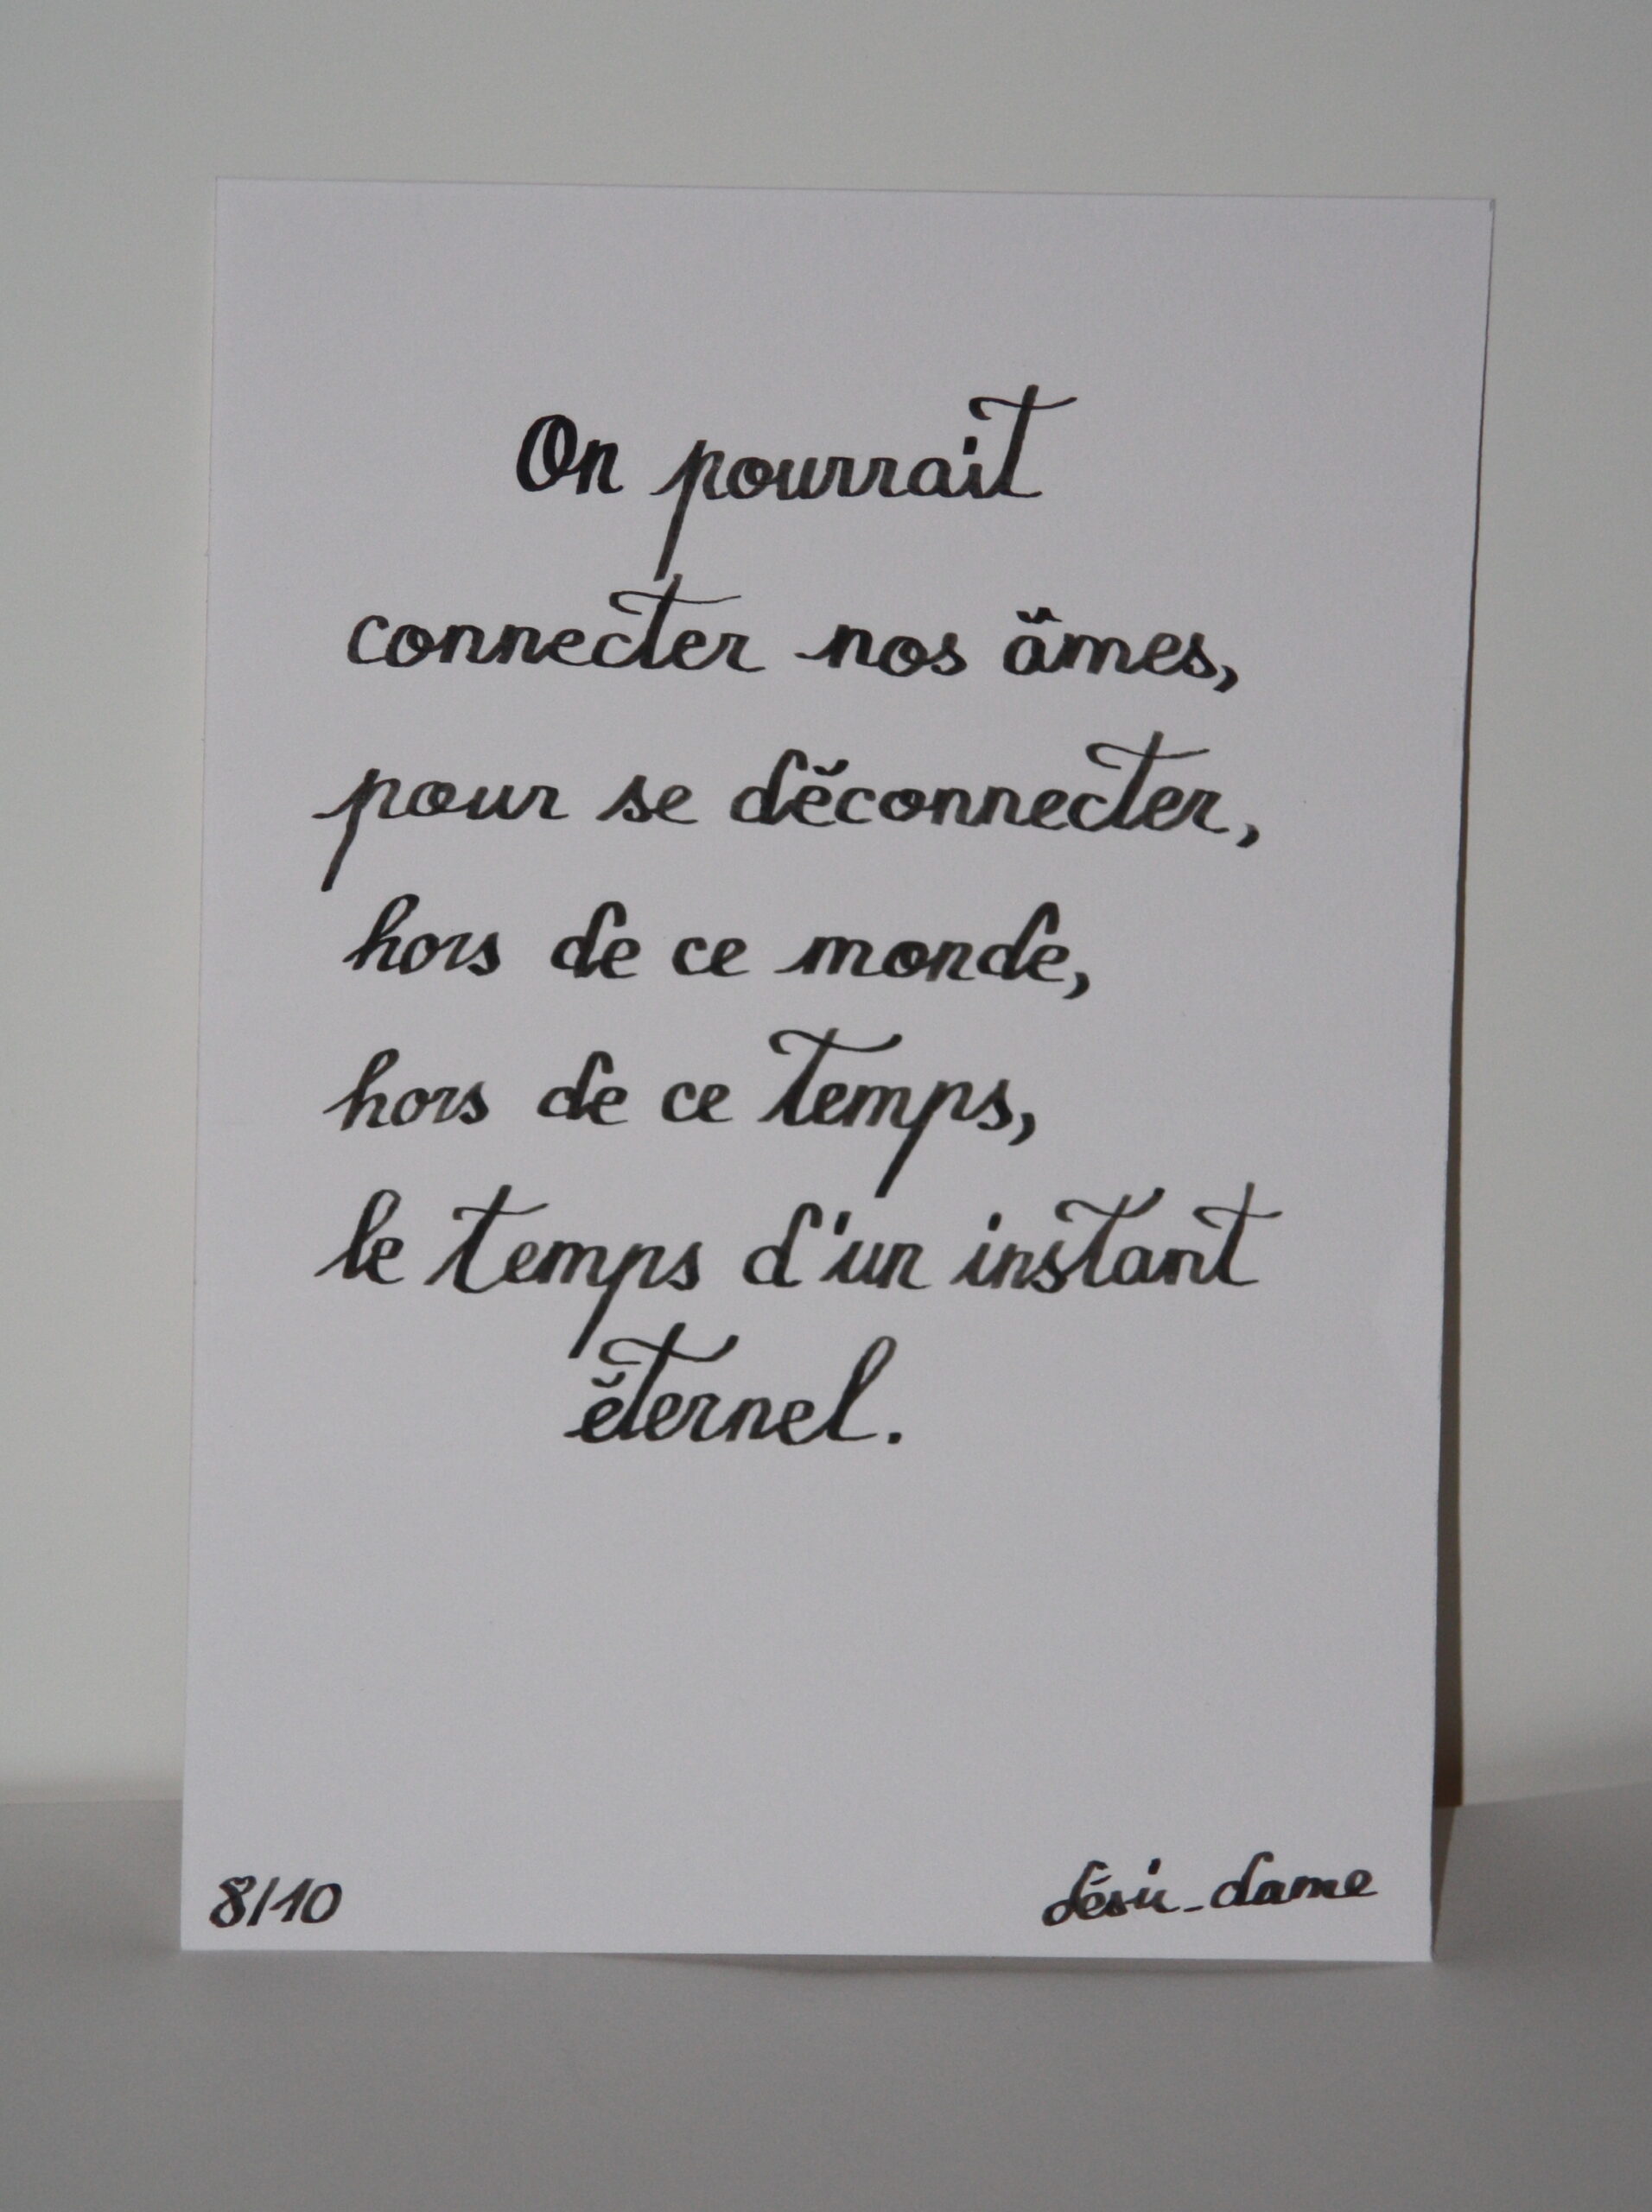 On pourrait
connecter nos âmes,
pour se déconnecter,
hors de ce monde,
hors de ce temps,
le temps d'un instant
éternel.
8/10
désir_dame